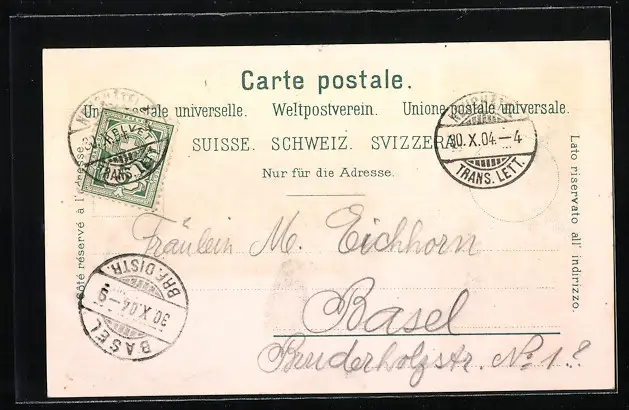 Carte postale.
Union postale universelle. Weltpostverein. Unione postale universale.
SUISSE. SCHWEIZ. SVIZZERA.
Nur für die Adresse.
Côté réservé à l'adresse.
Lato riservato all' indirizzo.
HELVETIA
TRANS. LETT.
NEUCHÂTEL
30.X.04.–4
TRANS. LETT.
BASEL
30.X.04.–9
BRF.DISTR.
Fräulein M. Eichhorn
Basel
Bruderholzstr. No 1.